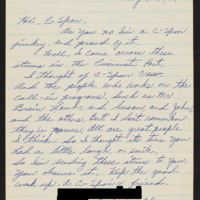 Hi, C-Span.
As you no I'm a C-Span
junkey and proud of it.
Well, I come across these
items in the Cincinnati Post.
I thought of C-Span crew
And the people who works on the
cable in programs. Such as Mr
Brian Lamb and Susan, and John,
and the others. But I don't remember
they're names. All are great people
I think. So I thought it's time you
had a little laugh, or smile.
So I'm sending these items to you.
You deserve it. Keep the good
work up. A C-Span friend.